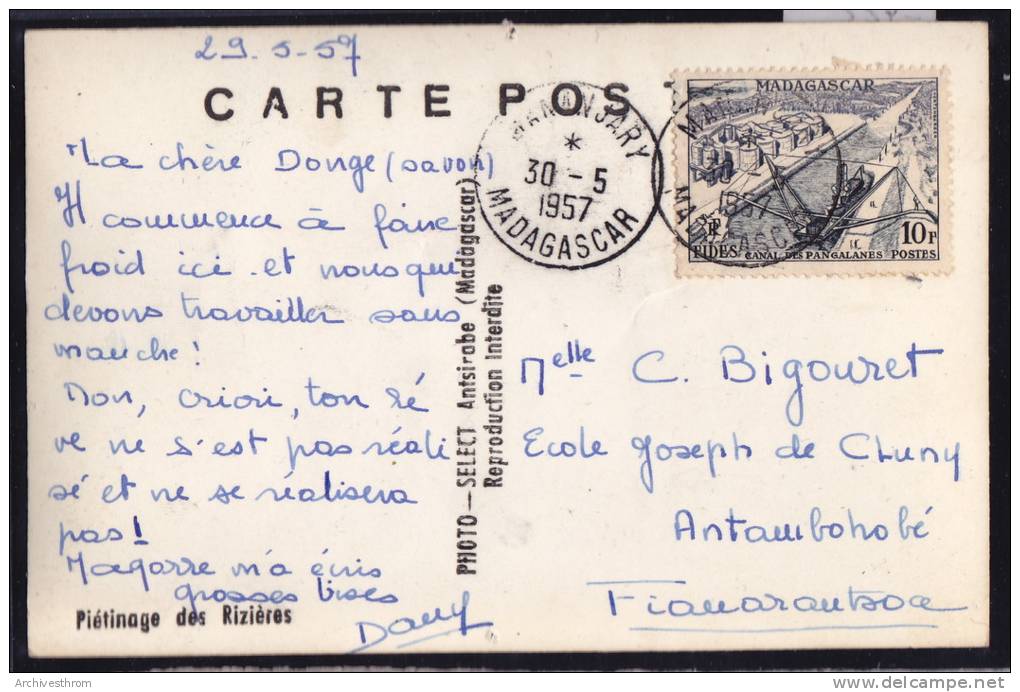 29.5-57
CARTE POST
La chère Donge (savon)
Il commence à faire
froid ici et nous qui
devons travailler sans
manche!
Non, criori, ton rê
ve ne s'est pas réali
sé et ne se réalisera
pas!
Magorre m'a écris
grosses bises
Dany
Piétinage des Rizières
PHOTO-SELECT Antsirabe (Madagascar)
Reproduction Interdite
MANANJARY
*
30-5
1957
MADAGASCAR
MADAGASCAR
1957
FIDES CANAL DES PANGALANES POSTES
10F
Melle C. Bigouret
Ecole Joseph de Cluny
Antambohobé
Fianarantsoa
Archivesthrom
delcampe.net